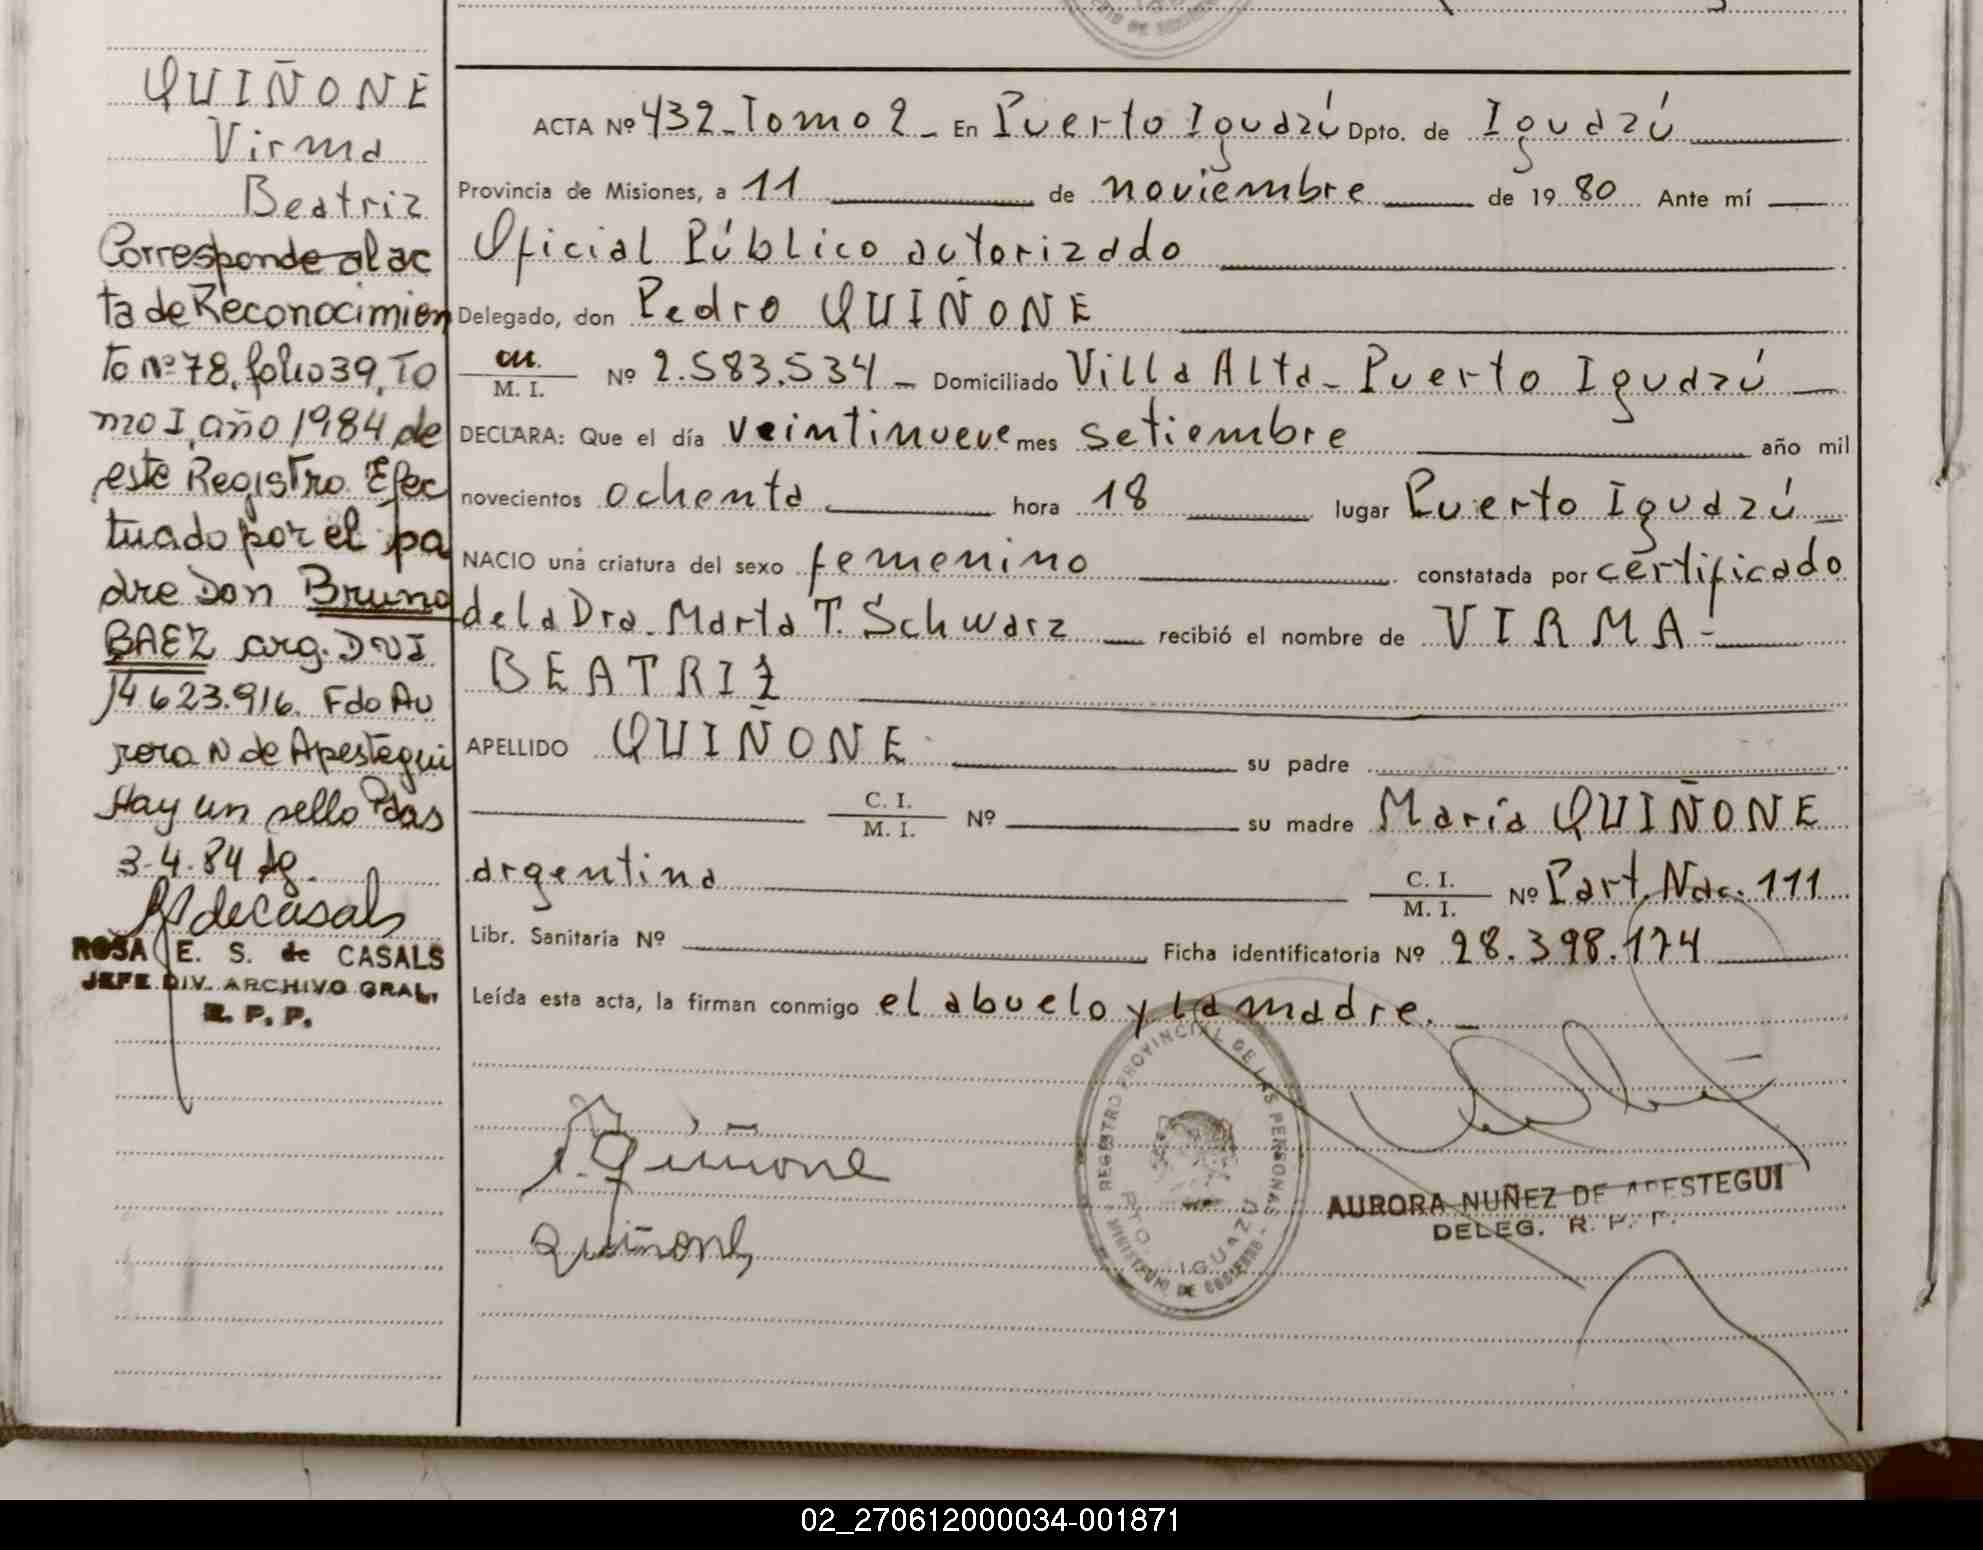 QUIÑONE
Virma
Beatriz
Corresponde al ac
ta de Reconocimien
to nº 78, folio 39, To
mo I, año 1984 de
este Registro Efec
tuado por el pa
dre Don Bruno
BAEZ arg. DNI
14623.916. Fdo Au
rora N de Apestegui
Hay un sello Pdas
3-4-84
ROSA E. S. de CASALS
JEFE DIV. ARCHIVO GRAL.
R. P. P.
ACTA Nº 432 - Tomo 2 - En Puerto Iguazú Dpto. de Iguazú
Provincia de Misiones, a 11 de noviembre de 19 80 Ante mí
Oficial Público autorizado
Delegado, don Pedro QUIÑONE
C.I. M. I. Nº 2.583.534 - Domiciliado Villa Alta - Puerto Iguazú
DECLARA: Que el día veintinueve mes setiembre año mil
novecientos ochenta hora 18 lugar Puerto Iguazú
NACIO una criatura del sexo femenino constatada por certificado
de la Dra. Marta T. Schwarz recibió el nombre de VIRMA-
BEATRIZ
APELLIDO QUIÑONE su padre
C. I. M. I. Nº su madre María QUIÑONE
argentina C. I. M. I. Nº Part. Nac. 111
Libr. Sanitaria Nº Ficha identificatoria Nº 28.398.174
Leída esta acta, la firman conmigo el abuelo y la madre.
Quiñone
REGISTRO PROVINCIAL DE LAS PERSONAS
PTO. IGUAZU
MINISTERIO DE GOBIERNO
AURORA NUÑEZ DE APESTEGUI
DELEG. R. P. P.
02_270612000034-001871